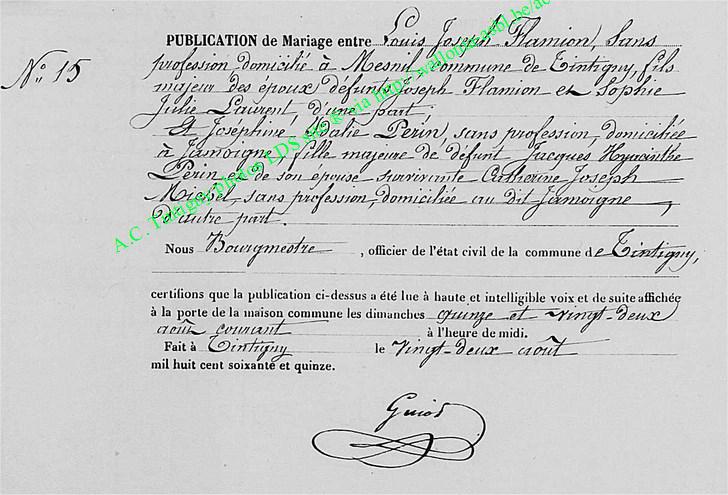 N° 15
PUBLICATION de Mariage entre Louis Joseph Flamion, sans
profession domicilié à Mesnil commune de Tintigny, fils
majeur des époux défunts Joseph Flamion et Sophie
Julie Laurent, d'une part
Et Josephine Odalie Périn, sans profession, domiciliée
à Jamoigne, fille majeure de défunt Jacques Hyacinthe
Périn et de son épouse survivante Catherine Joseph
sans profession, domiciliée au dit Jamoigne,
d'autre part.
Nous Bourgmestre, officier de l'état civil de la commune de Tintigny,
certifions que la publication ci-dessus a été lue à haute et intelligible voix et de suite affichée
à la porte de la maison commune les dimanches quinze et vingt-deux
août courant à l'heure de midi.
Fait à Tintigny le vingt-deux août
mil huit cent soixante et quinze.
A.C. Tintigny photos LDS via http://wallonia-asbl.be/ac